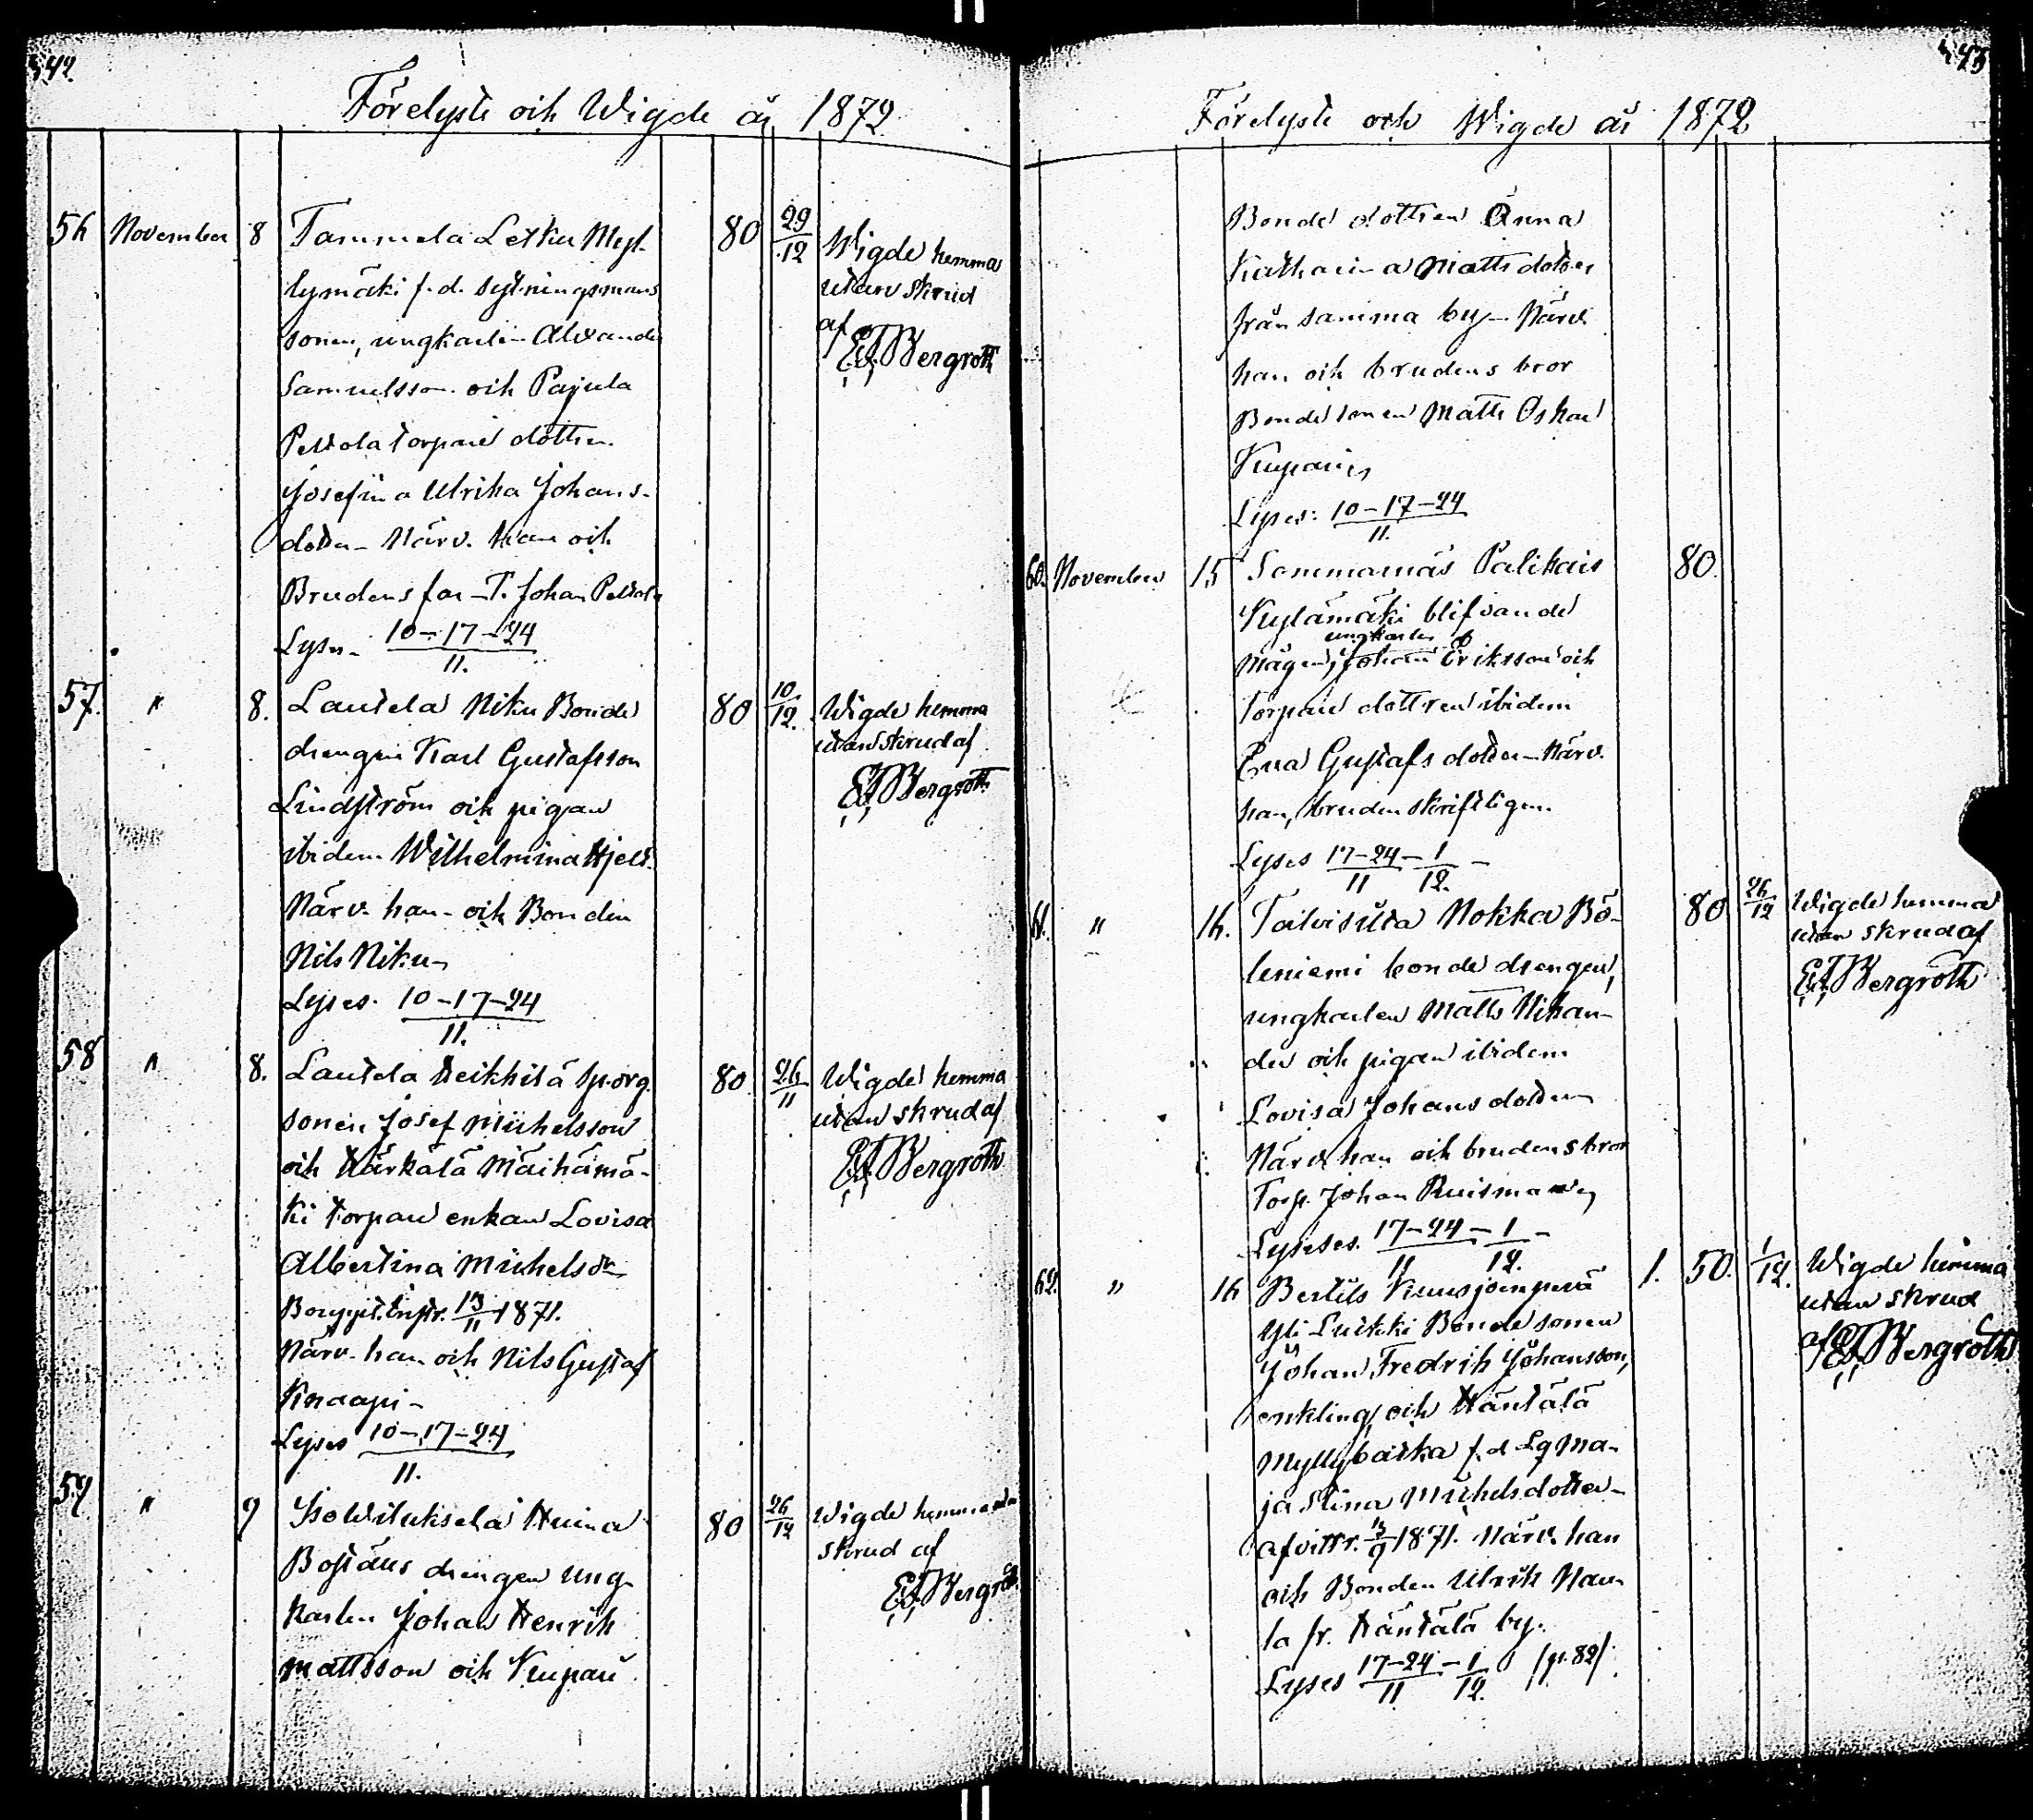 442
Förelyste och Wigde år 1872
56 November 8 Tammela Letku Myl-
lymäki f.d. sytningsmans
sonen, ungkarlen Alexander
Samuelsson och Pajula
Peltola torpare dottren
Josefina Ulrika Johans-
dotter - Närv. han och
Brudens far - T. Johan Peltola
Lyses - 10-17-24/11.
80 29/12 Wigde hemma
utan skrud
af
EJBergroth
57. " 8. Lautela Niku Bonde
drengen Karl Gustafsson
Lindström och pigan
ibidem Wilhelmina Hjelt.
Närv. han - och Bonden
Nils Niku -
Lyses. 10-17-24/11.
80 10/12. Wigde hemma
utan skrud af
EJBergroth
58 " 8. Lautela Heikkilä sp.org.
sonen Josef Michelsson
och Härkälä Mäihämä-
ki torpare enkan Lovisa
Albertina Michelsdr
Bouppt. Instr. 13/11 1871.
Närv. han och Nils Gustaf
Knaapi -
Lyses 10-17-24/11.
80 26/11 Wigde hemma
utan skrud af
EJBergroth
59 " 9 Isowiluksela Huina
Boställs drengen ung-
karlen Johan Henrik
Mattsson och Kupari
80 26/12 Wigde hemma utan
skrud af
EJBergroth
443
Förelyste och Wigde år 1872
Bonde dottren Anna
Katharina Mattsdotter
från samma by - Närv.
han och brudens bror
Bondesonen Matts Oskar
Kupari,
Lyses: 10-17-24/11.
60. November 15 Sammamäs Palikais
Kylämäki blifvande
ungkarlen
mågen, Johan Eriksson och
torpare dottren ibidem
Eva Gustafsdotter - Närv.
han, bruden skriftligen.
Lyses 17-24/11 - 1/12. -
80.
61. " 16. Talvisilta Nokka Bö-
leniemi bonde drengen,
ungkarlen Matts Nikan-
der och pigan ibidem
Lovisa Johansdotter
Närv. han och brudens bror
Torp. Johan Ruisma
Lyses. 17-24/11 - 1/12. -
80 26/12 Wigde hemma
utan skrud af
EJBergroth
62. " 16 Bertils Kuusjoenperä
Yli Luttki Bonde sonen
Johan Fredrik Johansson,
enkling, och Häntälä
Myllypaitka f.d. Lg Ma-
ja Stina Michelsdotter -
afvittr. 13/9 1871. Närv. han
och Bonden Ulrik Nau-
la fr. Häntälä by.
Lyses 17-24/11 - 1/12. (p. 82)
1. 50. 1/12. Wigde hemma
utan skrud
af EJBergroth